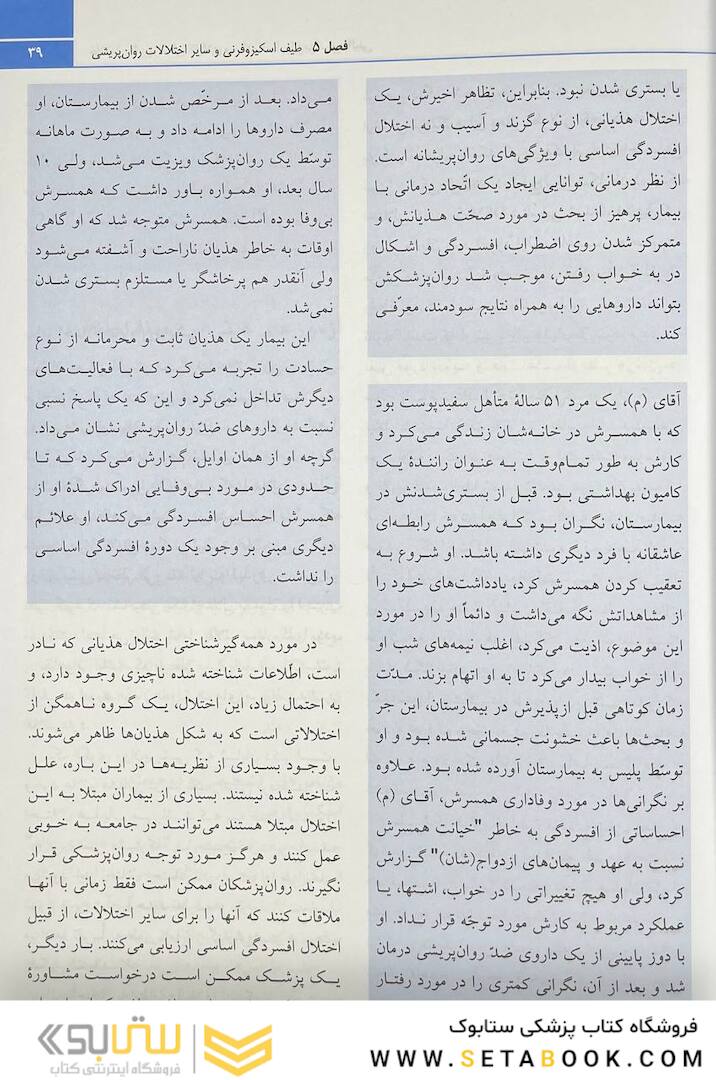 فصل ۵ طیف اسکیزوفرنی و سایر اختلالات روان‌پریشی
۳۹
یا بستری شدن نبود. بنابراین، تظاهر اخیرش، یک
اختلال هذیانی، از نوع گزند و آسیب و نه اختلال
افسردگی اساسی با ویژگی‌های روان‌پریشانه است.
از نظر درمانی، توانایی ایجاد یک اتّحاد درمانی با
بیمار، پرهیز از بحث در مورد صحّت هذیانش، و
متمرکز شدن روی اضطراب، افسردگی و اشکال
در به خواب رفتن، موجب شد روان‌پزشکش
بتواند داروهایی را به همراه نتایج سودمند، معرّفی
کند.
آقای (م)، یک مرد ۵۱ سالهٔ متأهل سفیدپوست بود
که با همسرش در خانه‌شان زندگی می‌کرد و
کارش به طور تمام‌وقت به عنوان رانندهٔ یک
کامیون بهداشتی بود. قبل از بستری‌شدنش در
بیمارستان، نگران بود که همسرش رابطه‌ای
عاشقانه با فرد دیگری داشته باشد. او شروع به
تعقیب کردن همسرش کرد، یادداشت‌های خود را
از مشاهداتش نگه می‌داشت و دائماً او را در مورد
این موضوع، اذیت می‌کرد، اغلب نیمه‌های شب او
را از خواب بیدار می‌کرد تا به او اتهام بزند. مدّت
زمان کوتاهی قبل ازپذیرش در بیمارستان، این جرّ
و بحث‌ها باعث خشونت جسمانی شده بود و او
توسّط پلیس به بیمارستان آورده شده بود. علاوه
بر نگرانی‌ها در مورد وفاداری همسرش، آقای (م)
احساساتی از افسردگی به خاطر "خیانت همسرش
نسبت به عهد و پیمان‌های ازدواج(شان)" گزارش
کرد، ولی او هیچ تغییراتی را در خواب، اشتها، یا
عملکرد مربوط به کارش مورد توجّه قرار نداد. او
با دوز پایینی از یک داروی ضدّ روان‌پریشی درمان
شد و بعد از آن، نگرانی کمتری را در مورد رفتار
می‌داد. بعد از مرخّص شدن از بیمارستان، او
مصرف داروها را ادامه داد و به صورت ماهانه
توسّط یک روان‌پزشک ویزیت می‌شد، ولی ۱۰
سال بعد، او همواره باور داشت که همسرش
بی‌وفا بوده است. همسرش متوجه شد که او گاهی
اوقات به خاطر هذیان ناراحت و آشفته می‌شود
ولی آنقدر هم پرخاشگر یا مستلزم بستری شدن
نمی‌شد.
این بیمار یک هذیان ثابت و محرمانه از نوع
حسادت را تجربه می‌کرد که با فعالیت‌های
دیگرش تداخل نمی‌کرد و این که یک پاسخ نسبی
نسبت به داروهای ضدّ روان‌پریشی نشان می‌داد.
گرچه او از همان اوایل، گزارش می‌کرد که تا
حدودی در مورد بی‌وفایی ادراک شدهٔ او از
همسرش احساس افسردگی می‌کند، او علائم
دیگری مبنی بر وجود یک دورهٔ افسردگی اساسی
را نداشت.
در مورد همه‌گیرشناختی اختلال هذیانی که نادر
است، اطّلاعات شناخته شده ناچیزی وجود دارد، و
به احتمال زیاد، این اختلال، یک گروه ناهمگن از
اختلالاتی است که به شکل هذیان‌ها ظاهر می‌شوند.
با وجود بسیاری از نظریه‌ها در این باره، علل
شناخته شده نیستند. بسیاری از بیماران مبتلا به این
اختلال مبتلا هستند می‌توانند در جامعه به خوبی
عمل کنند و هرگز مورد توجه روان‌پزشکی قرار
نگیرند. روان‌پزشکان ممکن است فقط زمانی با آنها
ملاقات کنند که آنها را برای سایر اختلالات، از قبیل
اختلال افسردگی اساسی ارزیابی می‌کنند. بار دیگر،
یک پزشک ممکن است درخواست مشاورهٔ
فروشگاه کتاب پزشکی ستابوک
WWW.SETABOOK.COM
ستابوک
فروشگاه اینترنتی کتاب